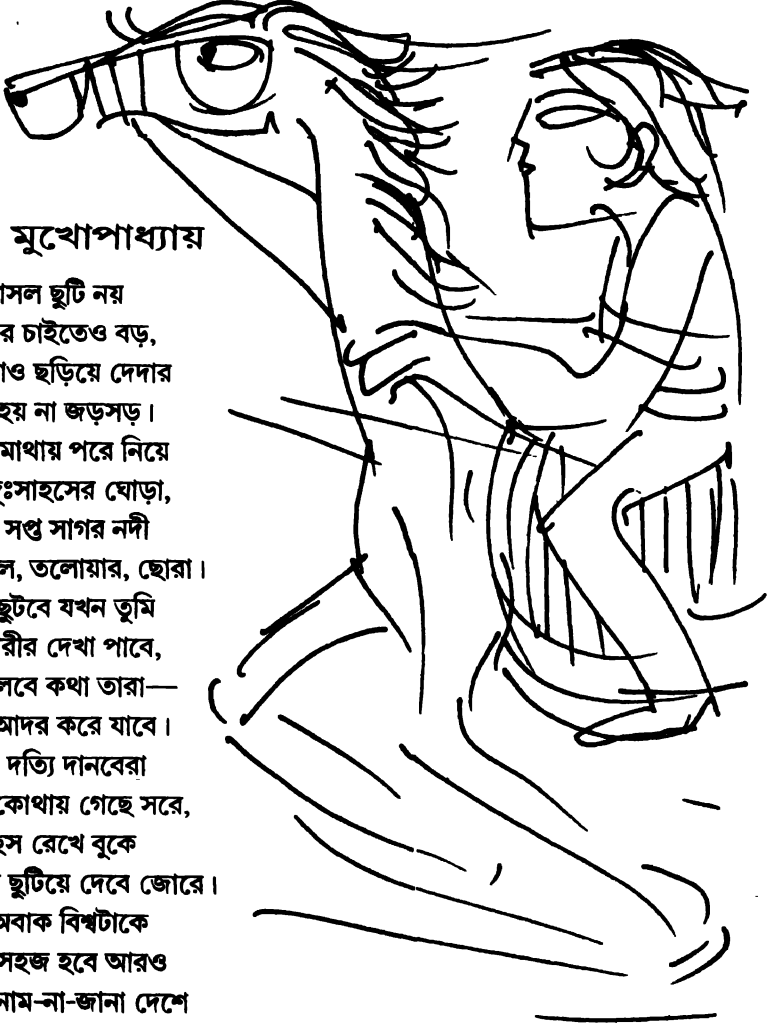 মুখোপাধ্যায়
ছুটি নয়
চাইতেও বড়,
ছড়িয়ে দেদার
হয় না জড়সড়।
মাথায় পরে নিয়ে
ঘোড়া,
সপ্ত সাগর নদী
তলোয়ার, ছোরা।
ছুটবে যখন তুমি
দেখা পাবে,
কথা তারা—
আদর করে যাবে।
দত্যি দানবেরা
কোথায় গেছে সরে,
রেখে বুকে
ছুটিয়ে দেবে জোরে।
অবাক বিশ্বটাকে
সহজ হবে আরও
নাম-না-জানা দেশে